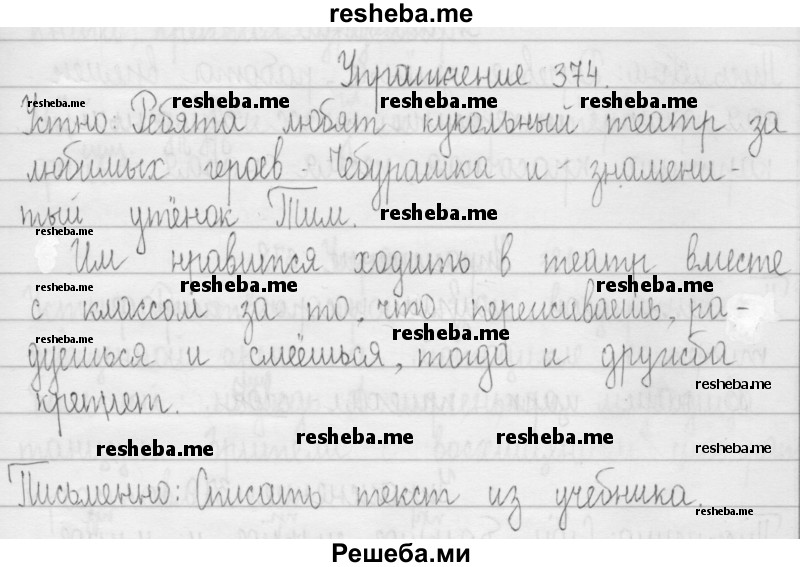 resheba.me
Упражнение 374.
resheba.me resheba.me resheba.me resheba.me
Устно: Ребята любят кукольный театр за
любимых героев - Чебурашка и знамени-
тый утёнок Тим. resheba.me
Им нравится ходить в театр вместе
resheba.me resheba.me resheba.me
с классом за то, что переживаешь, ра-
resheba.me
дуешься и смеёшься, тогда и дружба
resheba.me
крепнет.
resheba.me resheba.me
resheba.me
Письменно: Списать текст из учебника.
resheba.me
Решеба.ми